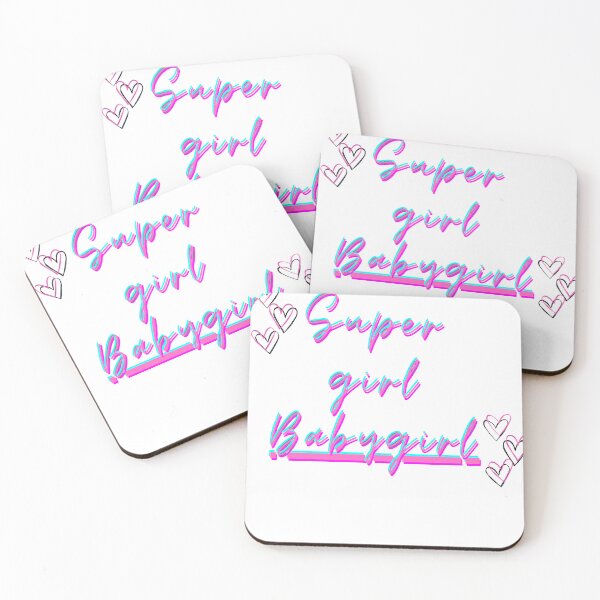 Super
girl
Super
girl
Babygirl
Super
girl
Babygirl
Super
girl
Babygirl